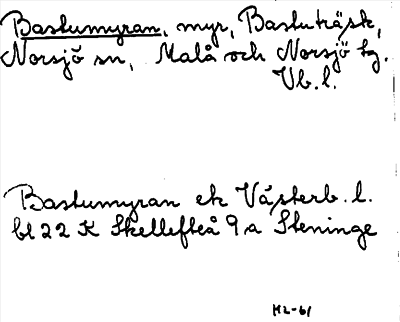 Bastumyran, myr, Bastuträsk,
Norsjö sn, Malå och Norsjö tg.
Vb. l.
Bastumyran ek Västerb. l.
bl 22 K Skellefteå 9 a Steninge
HL-61